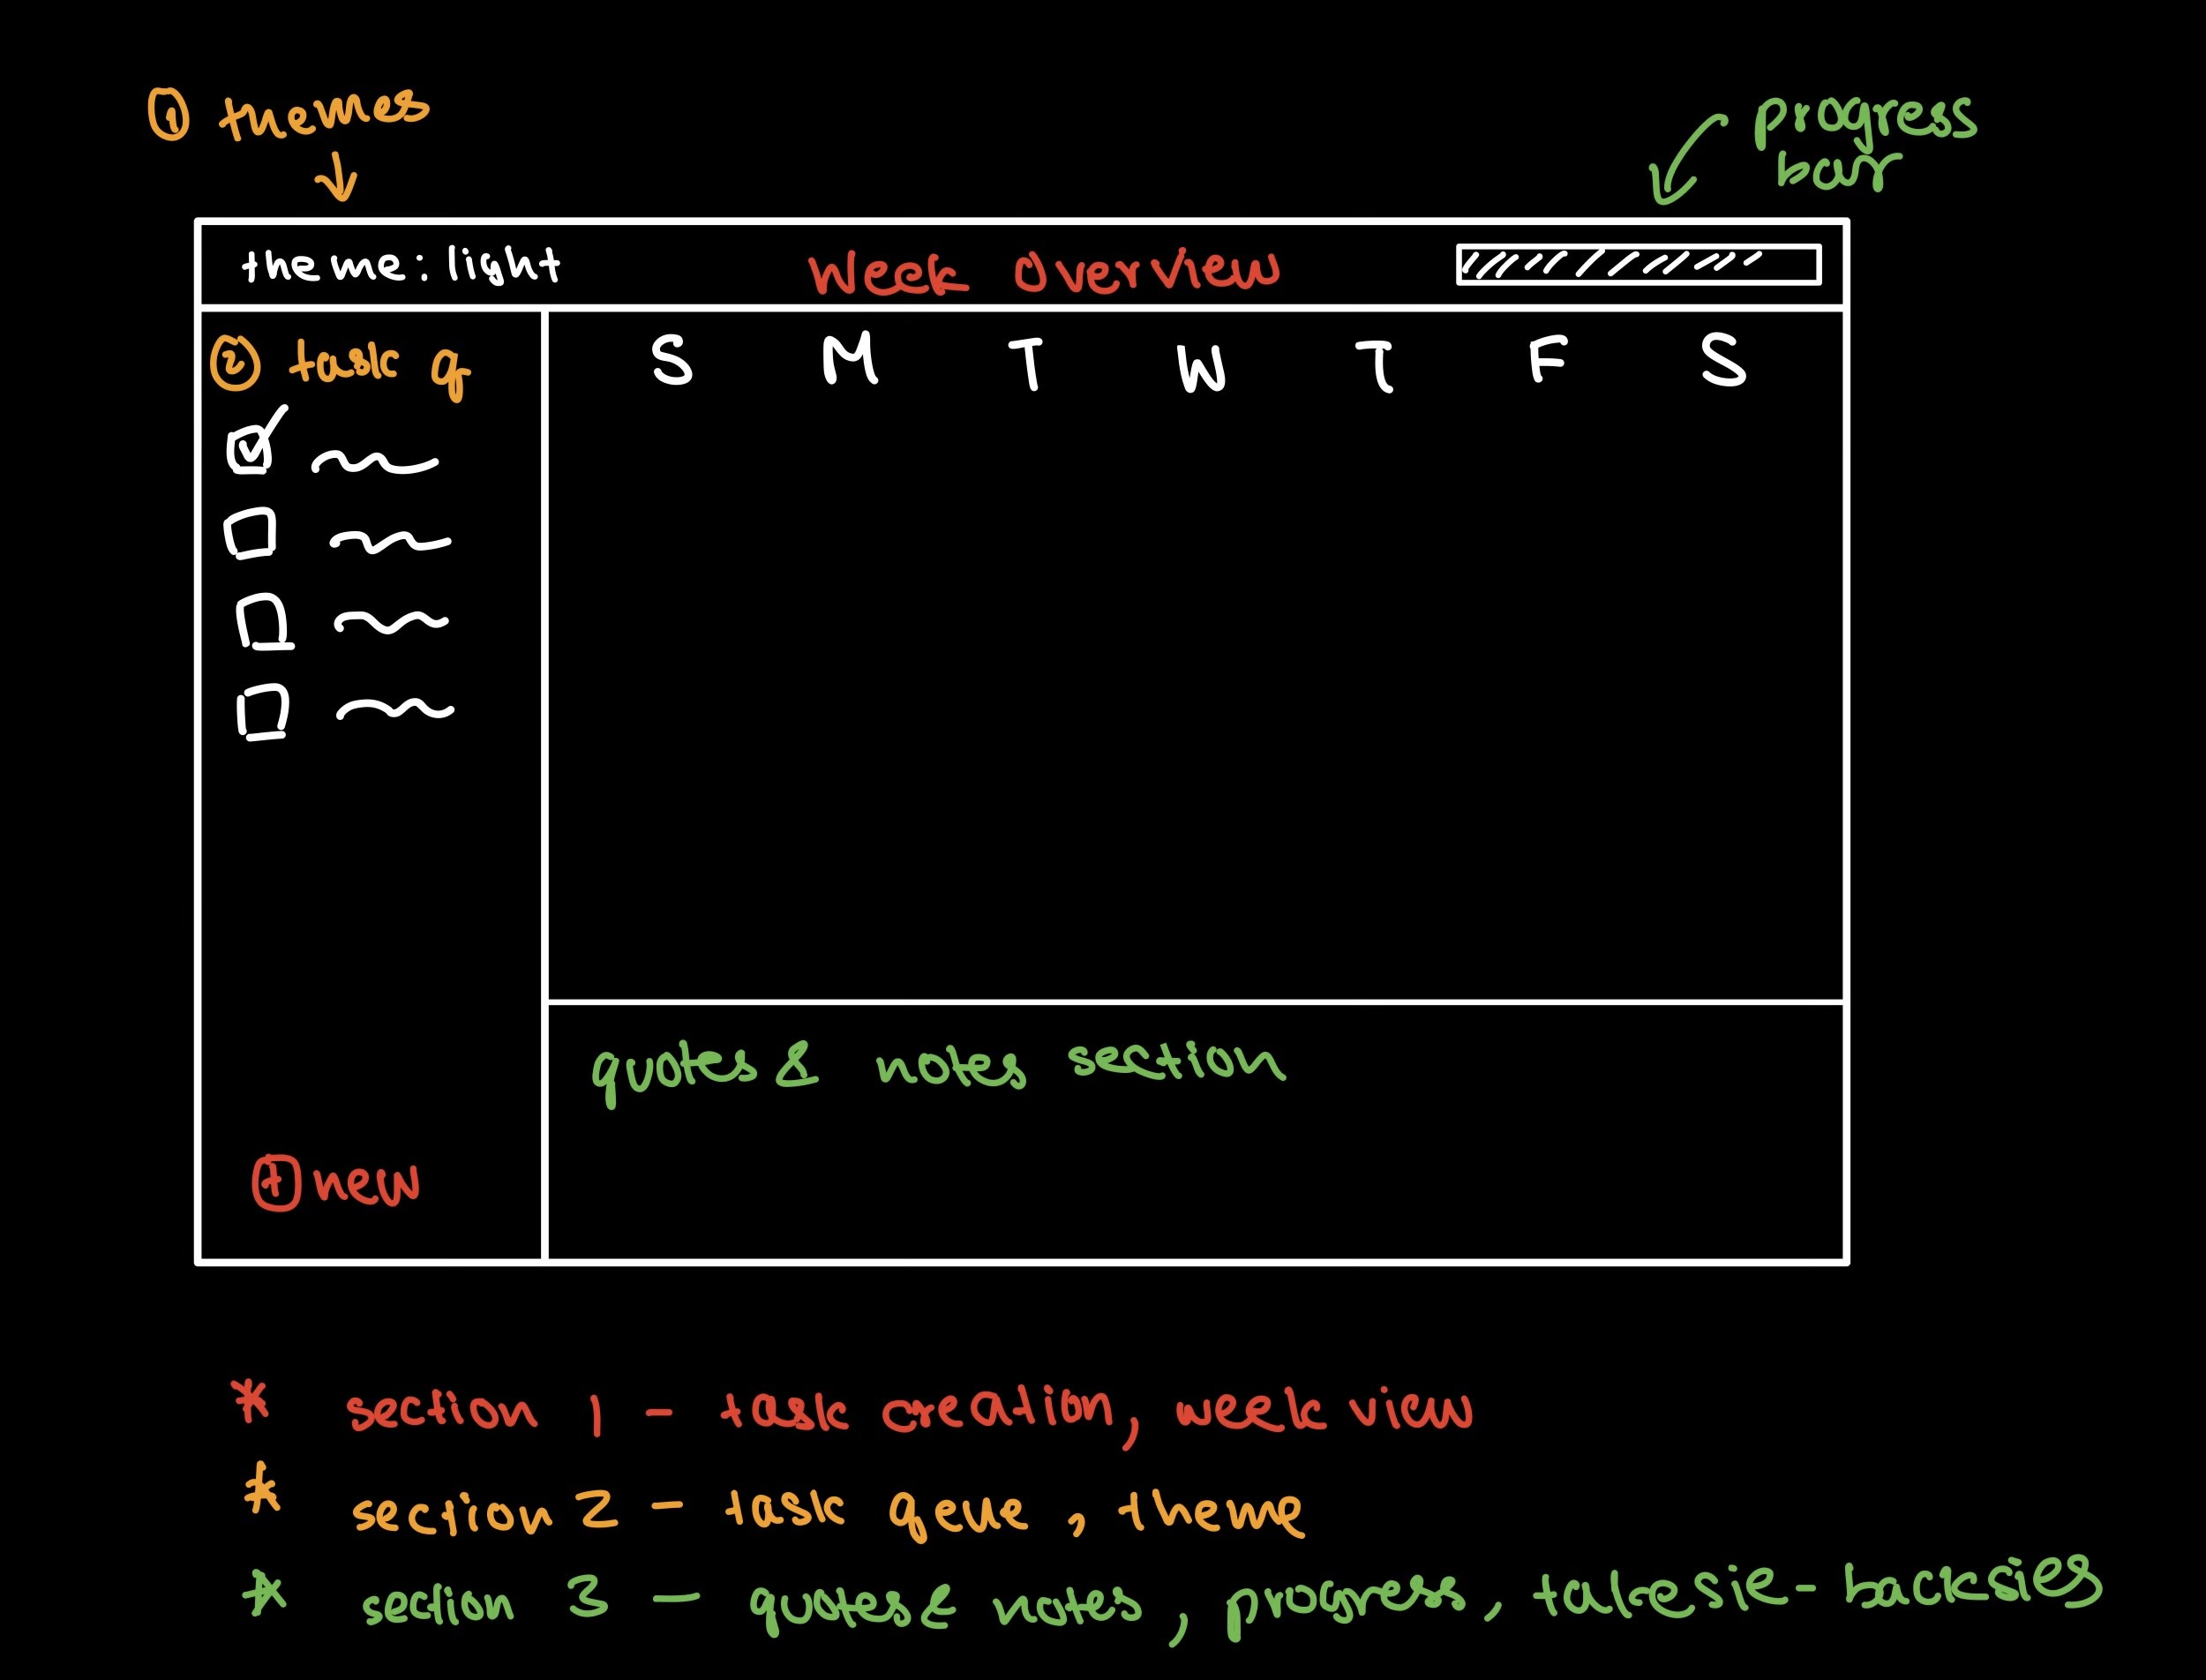 ① themes
progress
bar
theme: light
Week Overview
② task q
S M T W T F S
quotes & notes section
+ new
* section 1 - task creation, week view
* section 2 - task queue, theme
* section 3 - quotes & notes, progress, takesie-backsies